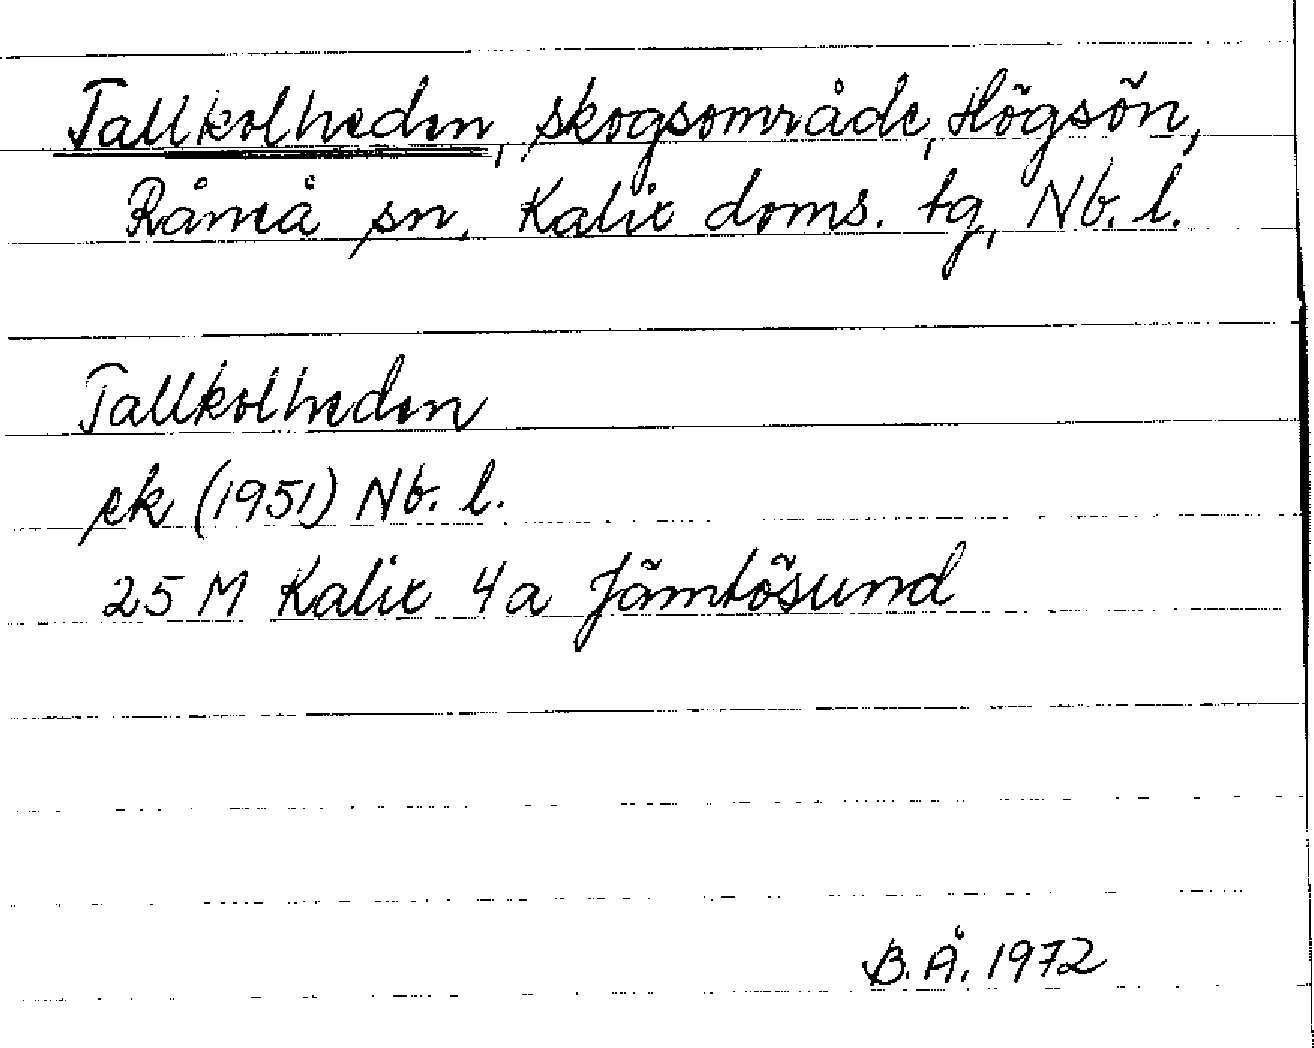 Tallkolheden, skogsområde, Högsön,
Råneå sn, Kalix doms. tg, Nb. l.
Tallkolheden
ek (1951) Nb. l.
25 M Kalix 4a Jämtösund
B. Å. 1972